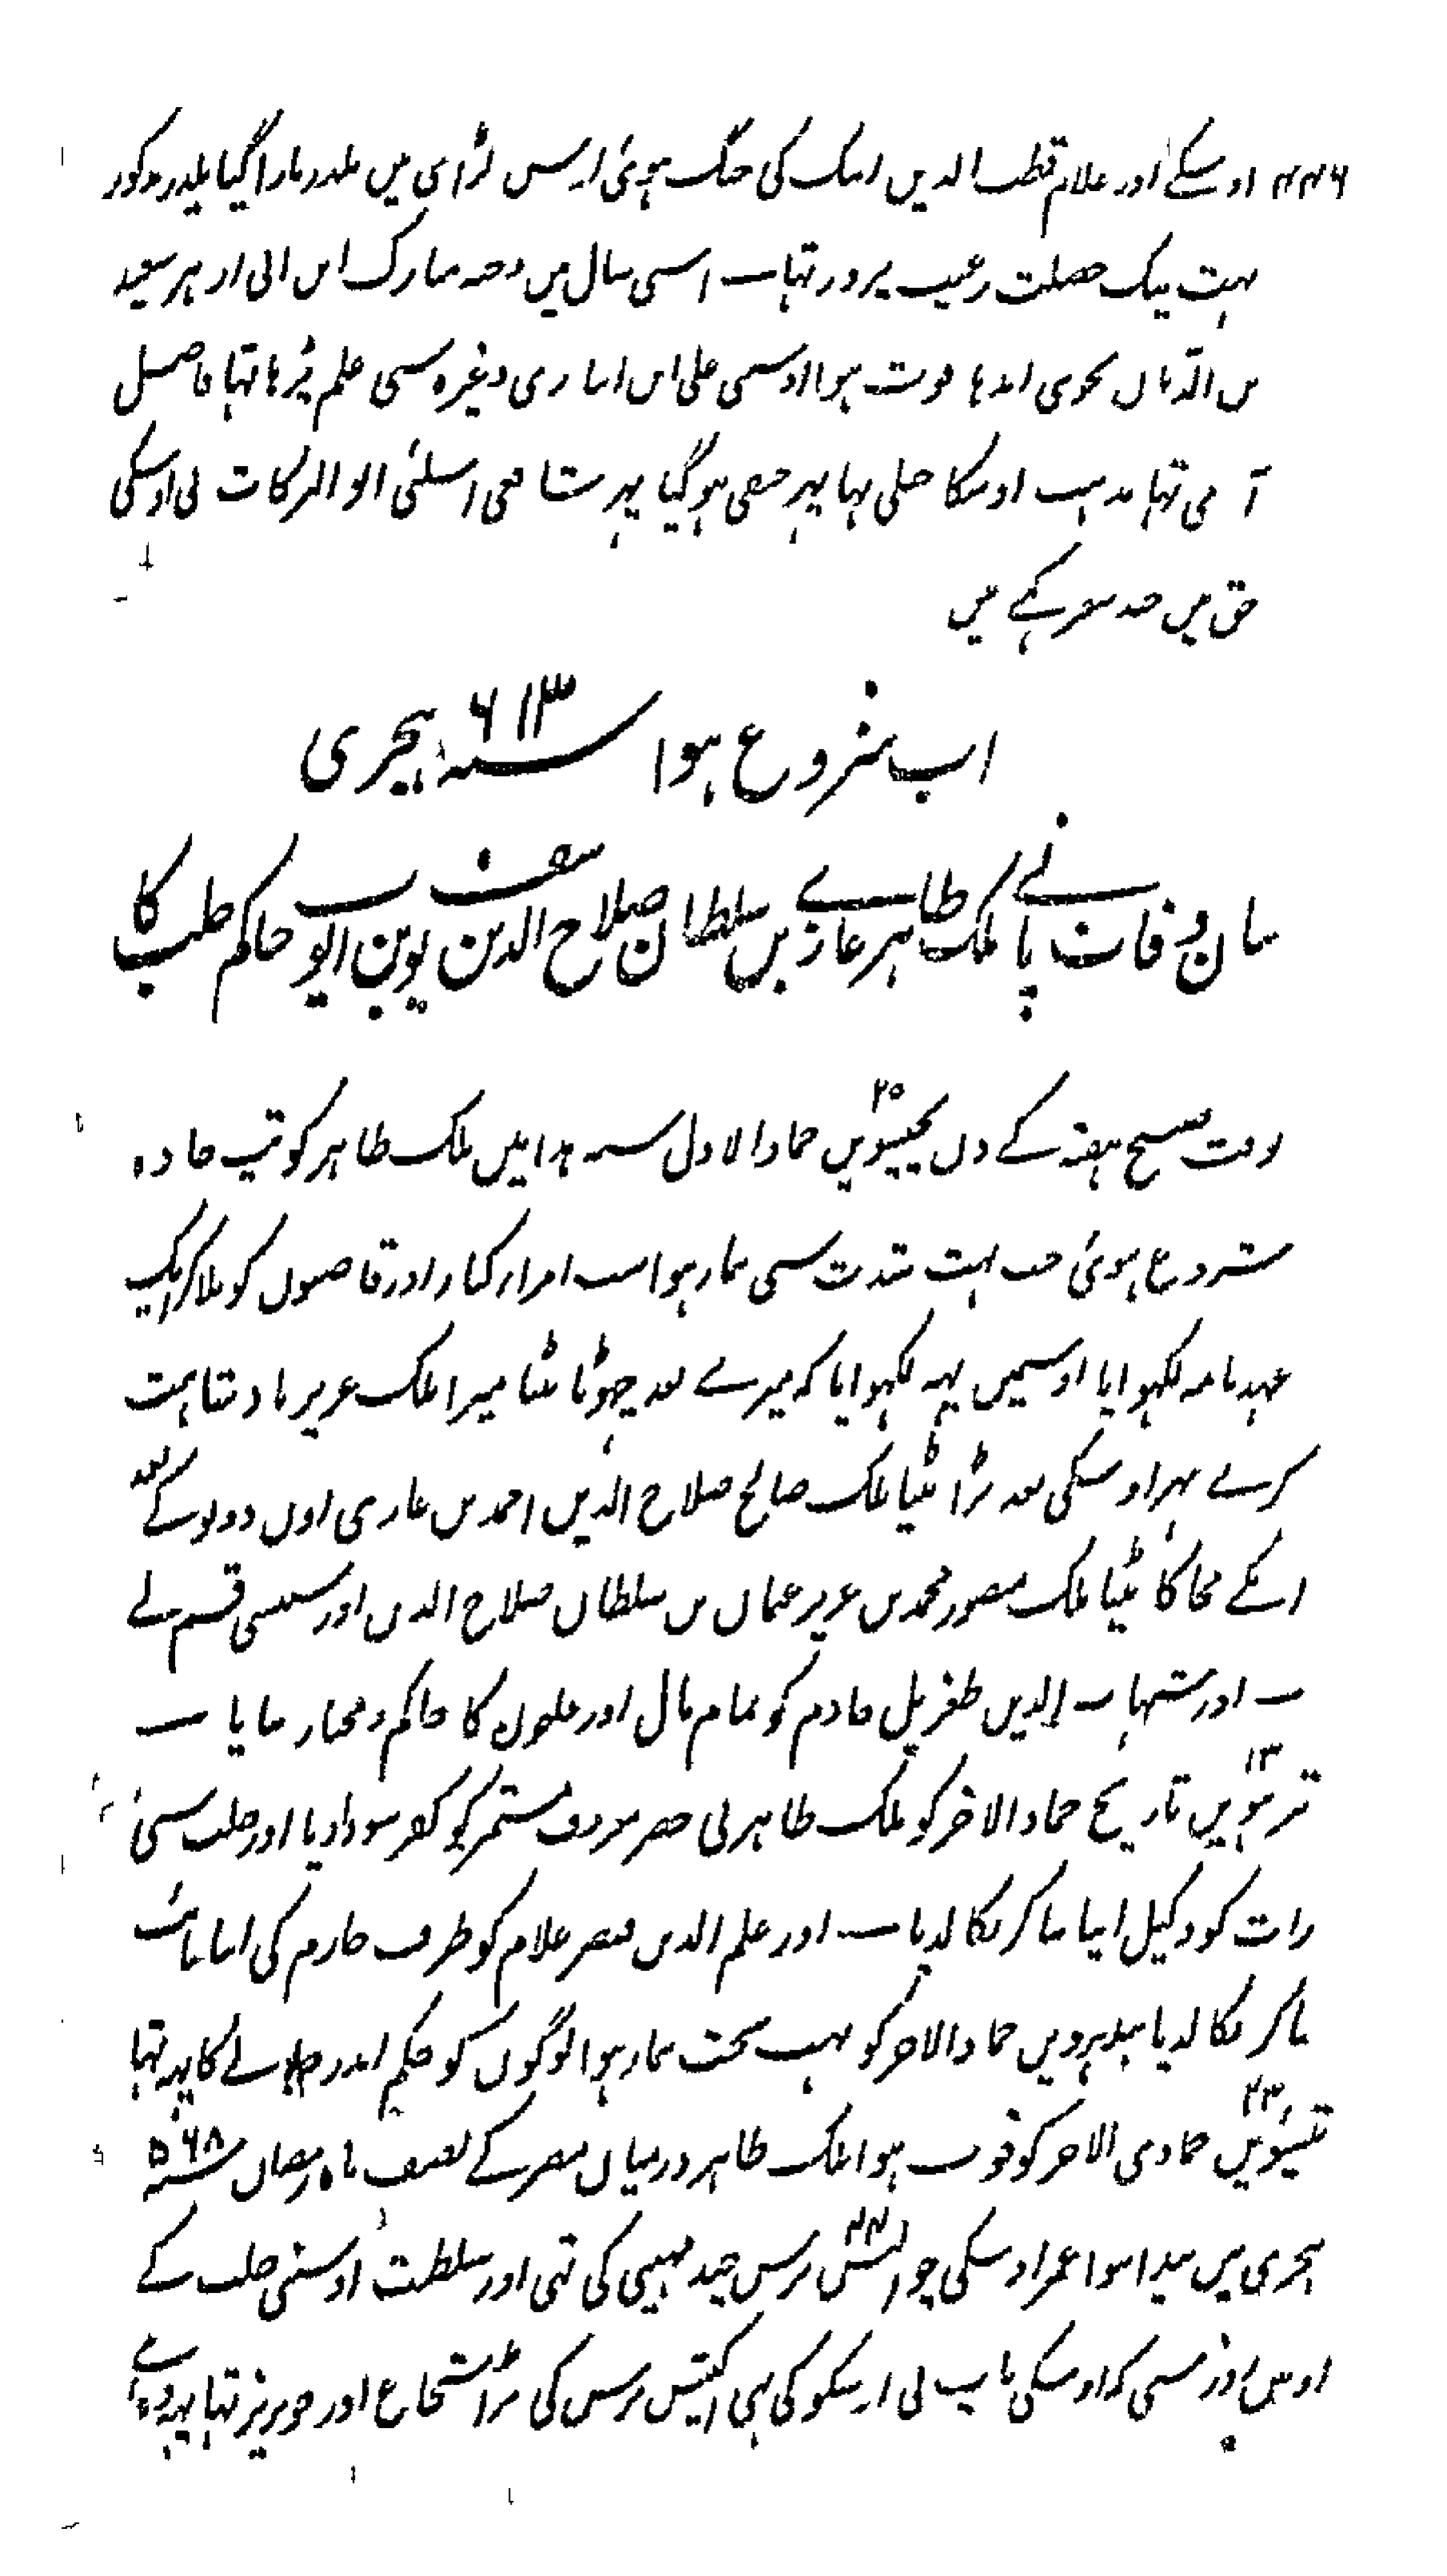 ۴۴۶ اوسکے اور غلام قطب الدین ایبک کی جنگ ہوئی اوس لڑائی میں یلدز مارا گیا یلدز مذکور
بہت نیک خصلت رعیت پرور تہا ــ اسی سال میں وجہ مبارک ابن ابی ازہر سعید
بن الدہان نحوی اندہا فوت ہوا اوسی علی ابن انباری وغیرہ سی علم پڑہا تہا فاضل
آدمی تہا مذہب اوسکا حنبلی تہا پہر حنفی ہوگیا پہر شافعی اسلئی ابو البرکات نی اوسکی
حق میں چند شعر کہے ہیں
اب شروع ہوا سنہ ۶۱۳ ہجری
بیان وفات پانے ملک ظاہر غازی بن سلطان صلاح الدین یوسف بن ایوب حاکم حلب کا
بوقت صبح ہفتہ کے دن پچیسویں ۲۵ جماد الاول سنہ ہذا میں ملک ظاہر کو تپ حادہ
شروع ہوئی جب بہت شدت سی بیمار ہوا سب امرار کبار اور قاضیوں کو بلاکر ایک
عہد نامہ لکہوایا اوسمیں یہہ لکہوایا کہ میرے بعد چہوٹا بیٹا میرا ملک عزیز بادشاہت
کرے پہر اوسکی بعد بڑا بیٹا ملک صالح صلاح الدین احمد بن غازی اون دونو کے بعد
انکے چچا کا بیٹا ملک منصور محمد بن عزیز عثمان بن سلطان صلاح الدین اور سبسی قسم لے
ــ اور شہاب الدین طغریل خادم کو تمام مال اور قلعوں کا حاکم و مختار بنایا ــ
تیرہویں ۱۳ تاریخ جماد الاخر کو ملک ظاہر نی خضر معروف مستمر کو کفر سودا دیا اور حلب سی
رات کو وکیل اپنا بنا کر نکالدیا ــ اور علم الدین قیصر غلام کو طرف حارم کی اپنا نائب
بنا کر نکالدیا پندرہویں جماد الاخر کو بہت سخت بیمار ہوا لوگوں کو حکم اندر جانے کا نہ تہا
تئیسویں ۲۳ جمادی الاخر کو فوت ہوا ملک ظاہر درمیان مصر کے نصف ماہ رمضان سنہ ۵۶۸
ہجری میں پیدا ہوا عمر اوسکی چوالیس ۴۴ برس چند مہینی کی تہی اور سلطنت اوسنی حلب کے
اوس روز سی کہ اوسکی باپ نی اوسکو دی تہی اکتیس برس کی بڑا شجاع اور خوریز تہا پہر